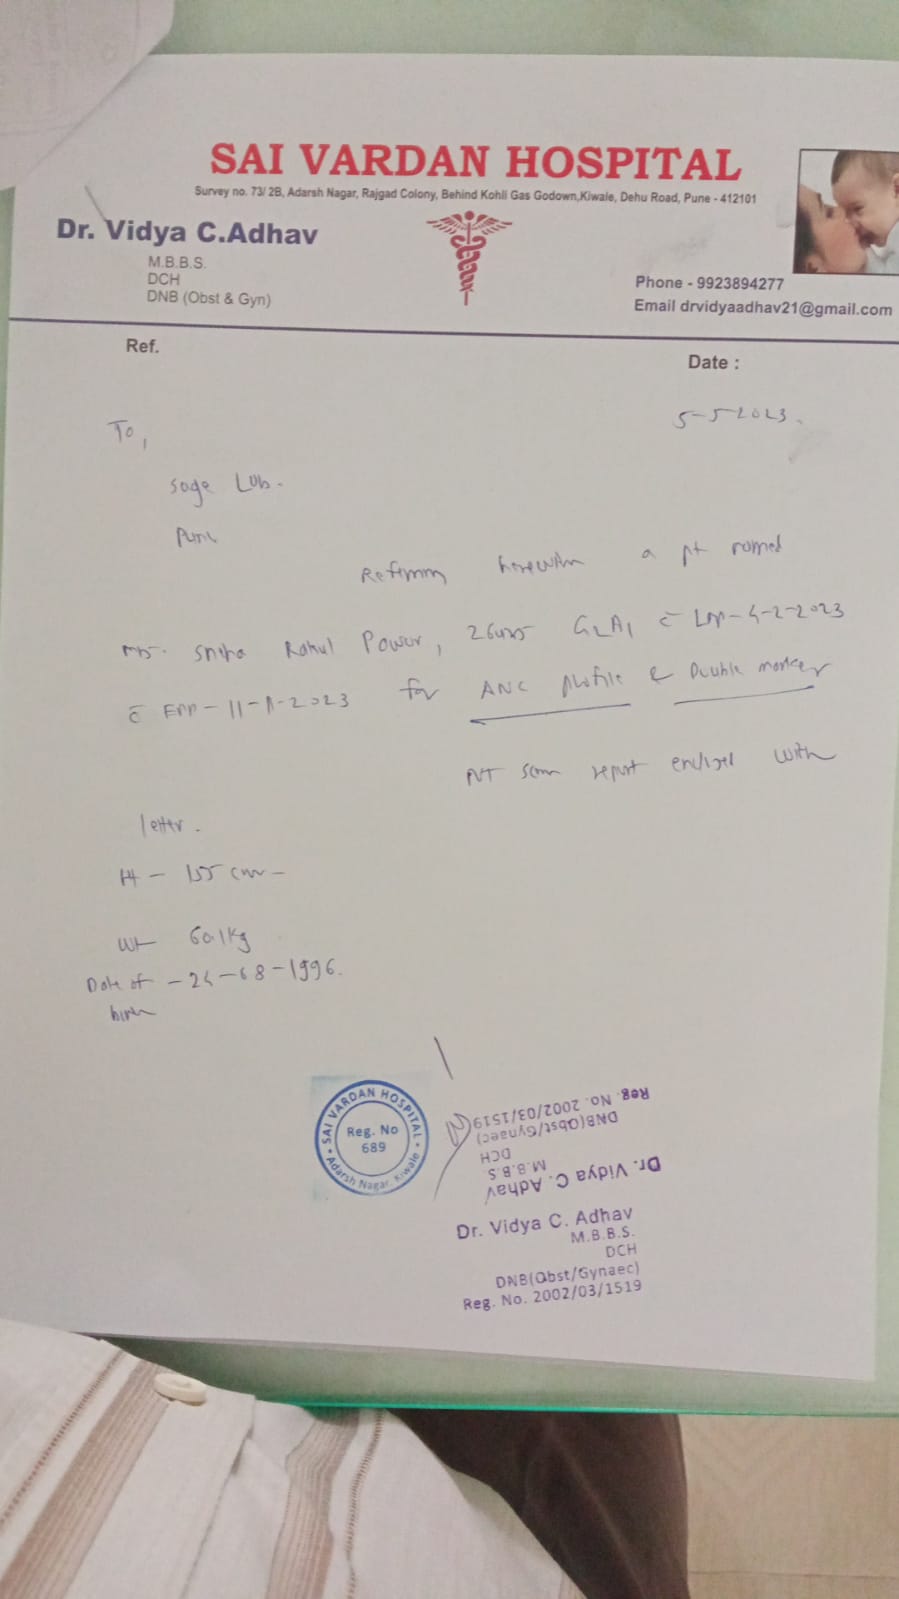 SAI VARDAN HOSPITAL
Survey no. 73/ 2B, Adarsh Nagar, Rajgad Colony, Behind Kohli Gas Godown,Kiwale, Dehu Road, Pune - 412101
Dr. Vidya C.Adhav
M.B.B.S.
DCH
DNB (Obst & Gyn)
Phone - 9923894277
Email drvidyaadhav21@gmail.com
Ref.
Date :
5-5-2023.
To,
Sage Lab.
Pune
Referring herewith a pt named
Mrs. Rahul 26yrs G2A1 c̄ LMP-4-2-2023
c̄ EDD-11-11-2023 for ANC profile & Double marker
NT scan report enclosed with
letter.
Ht - 155 cm -
Wt 60.1kg
Date of - 24-08-1996.
birth
SAI VARDAN HOSPITAL
Reg. No
689
Adarsh Nagar, Kiwale
Dr. Vidya C. Adhav
M.B.B.S
DCH
DNB(Obst/Gynaec)
Reg. No. 2002/03/1519
Dr. Vidya C. Adhav
M.B.B.S.
DCH
DNB(Obst/Gynaec)
Reg. No. 2002/03/1519